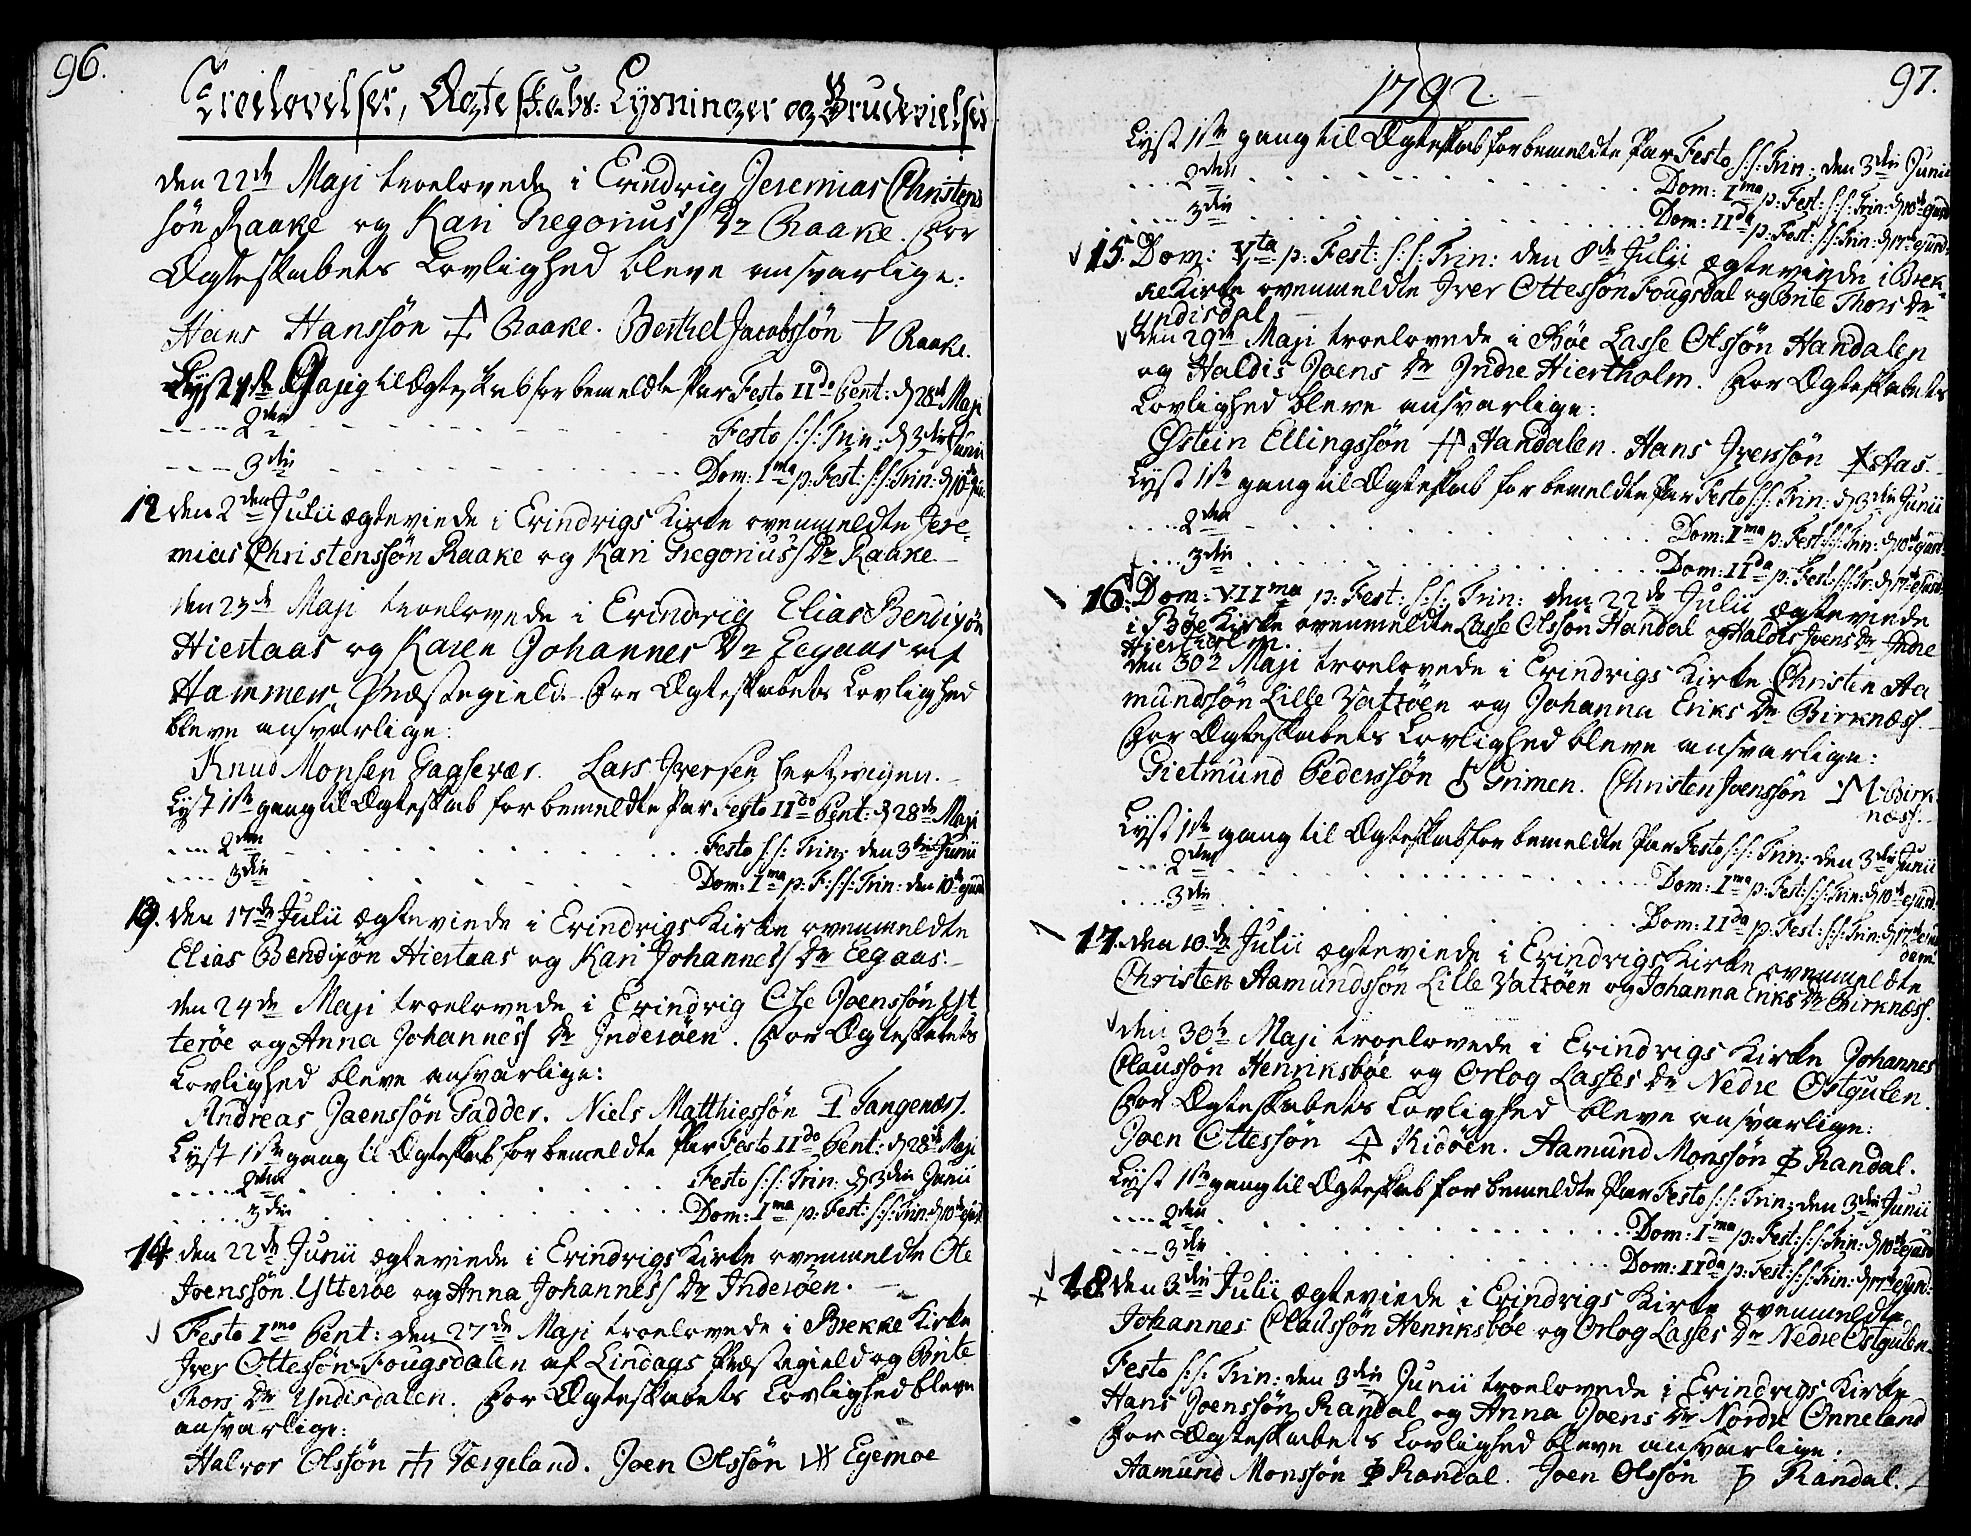 96.
Troelovelser, Ægteskabs: Lysninger og Brudevielser
den 22de Maji troelovede i Eindrig Jeremias Christens
søn Raake og Kari Gregorius's Dr Raake. For
Ægteskabets Lovlighed bleve ansvarlige:
Hans Hanssøn Raake. Berthel Jacobssøn Raake.
Lyst 1ste Gang til Ægteskab for bemeldte Par Festo IIdo Pent: d 28de Maji
- - - - 2den - - - - - - Festo S:S: Trin: d 3die Junii
- - - - 3die - - - - - - Dom: Ima p: Fest: S:S: Trin: d 10de
12 den 2den Julii ægteviede i Eindrigs Kirke ovenmeldte Jere-
mias Christenssøn Raake og Kari Gregorius's Dr Raake.
den 23de Maji troelovede i Eindrig Elias Bendixøn
Hiertaas og Karen Johannes Dr Eegaas af
Hammers Præstegield. For Ægteskabets Lovlighed
bleve ansvarlige:
Knud Monsen Gagsevær. Lars Iversen Hertzvigen.
Lyst 1ste gang til Ægteskab for bemeldte Par Festo IIdo Pent: d 28de Maji
.... 2den - - - - - - Festo S:S: Trin: den 3die Junii
.... 3die - - - - - - Dom: Ima p: F: S:S: Trin: den 10de ejusd
13. den 17de Julii ægteviede i Eindrigs Kirke ovenmeldte
Elias Bendixøn Hiertaas og Kari Johannes's Dr Eegaas.
den 24de Maji troelovede i Eindrig Ole Joenssøn Yt
terøe og Anna Johannes's Dr Inderøen. For Ægteskabets
Lovlighed bleve ansvarlige:
Andreas Joenssøn Gadder. Niels Matthiessøn Tangenæss.
Lyst 1ste gang til Ægteskab for bemeldte Par Festo IIdo Pent: d 28de Maji
.... 2den . . . . . . Festo S:S: Trin: d 3die Junii
.... 3die . . . . . . Dom: Ima p: Fest: S:S: Trin: d 10de ejusd
14 den 22de Junii ægteviede i Eindrigs Kirke ovenmeldte Ole
Joenssøn Ytterøe og Anna Johannes's Dr Inderøen.
Festo Imo Pent: den 27de Maji troelovede i Brekke Kirke
Iver Ottessøn Fougsdalen af Lindaas Præstegield og Brite
Thors Dr Yndisdalen. For Ægteskabets Lovlighed bleve
ansvarlige:
Halvor Olssøn Værgeland. Joen Olssøn Egemoe
1792.
97.
Lyst 1ste gang til Ægteskab for bemeldte Par Festo S:S: Trin: den 3die Junii
.... 2den . . . . . . Dom: Ima p: Fest: S:S: Trin: d 10de ejusd
.... 3die . . . . . . Dom: IIda p: Fest: S:S: Trin: d 17de ejusd:
15. Dom: Vta p: Fest: S:S: Trin: den 8de Julii ægteviede i Brek-
ke Kirke ovenmeldte Iver Ottessøn Fougsdal og Brite Thors Dr
Yndisdal
den 29de Maji troelovede i Bøe Lasse Olssøn Handalen
og Haldis Joens Dr Indre Hiertholm. For Ægteskabets
Lovlighed bleve ansvarlige:
Østein Ellingssøn Handalen. Hans Iverssøn Aas.
Lyst 1ste gang til Ægteskab for bemeldte Par Festo S:S: Trin: d 3die Junii
.... 2den . . . . . . Dom: Ima p: Fest: S:S: Trin: d 10de ejusd
.... 3die . . . . . . Dom: IIda p: Fest: S:S: Tr: d 17de ejusd:
16. Dom: VIIma p: Fest: S:S: Trin: den 22de Julii ægteviede
i Bøe Kirke ovenmeldte Lasse Olssøn Handal og Haldis Joens Dr Indre
Hiertholm.
den 30te Maji troelovede i Eindrigs Kirke Christen Aa
mundssøn Lille Vatzøen og Johanna Eriks Dr Birknæss.
For Ægteskabets Lovlighed bleve ansvarlige:
Gietmund Pederssøn Grimen. Christen Joenssøn Birk-
næss.
Lyst 1ste gang til Ægteskab for bemeldte Par Festo S:S: Trin: den 3die Junii
.... 2den . . . . . . Dom: Ima p: Fest: S:S: Trin: d 10de ejusd:
.... 3die . . . . . . Dom: IIda p: Fest: S:S: Trin: d 17de ejus
dem.
17. den 10de Julii ægteviede i Eindrigs Kirke ovenmeldte
Christen Aamundssøn Lille Vatzøen og Johanna Eriks Dr Birknæss.
den 30te Maji troelovede i Eindrigs Kirke Johannes
Claussøn Henriksbøe og Orlog Lasses Dr Nedre Østgulen.
For Ægteskabets Lovlighed bleve ansvarlige:
Joen Ottessøn Risøen. Aamund Monssøn Randal.
Lyst 1ste gang til Ægteskab for bemeldte Par Festo S:S: Trin: den 3die Junii
.... 2den . . . . . . Dom: Ima p: Fest: S:S: Trin: d 10de ejusd
.... 3die . . . . . . Dom: IIda p: Fest: S:S: Trin: d 17de ejusd:
18 den 3die Julii ægteviede i Eindrigs Kirke ovenmeldte
Johannes Claussøn Henriksbøe og Orlog Lasses Dr Nedre Østgulen.
Festo S:S: Trin: den 3die Junii troelovede i Eindrigs Kirke
Hans Joenssøn Randal og Anna Joens Dr Nordre Onneland
For Ægteskabets Lovlighed bleve ansvarlige:
Aamund Monssøn Randal. Joen Olssøn Randal.